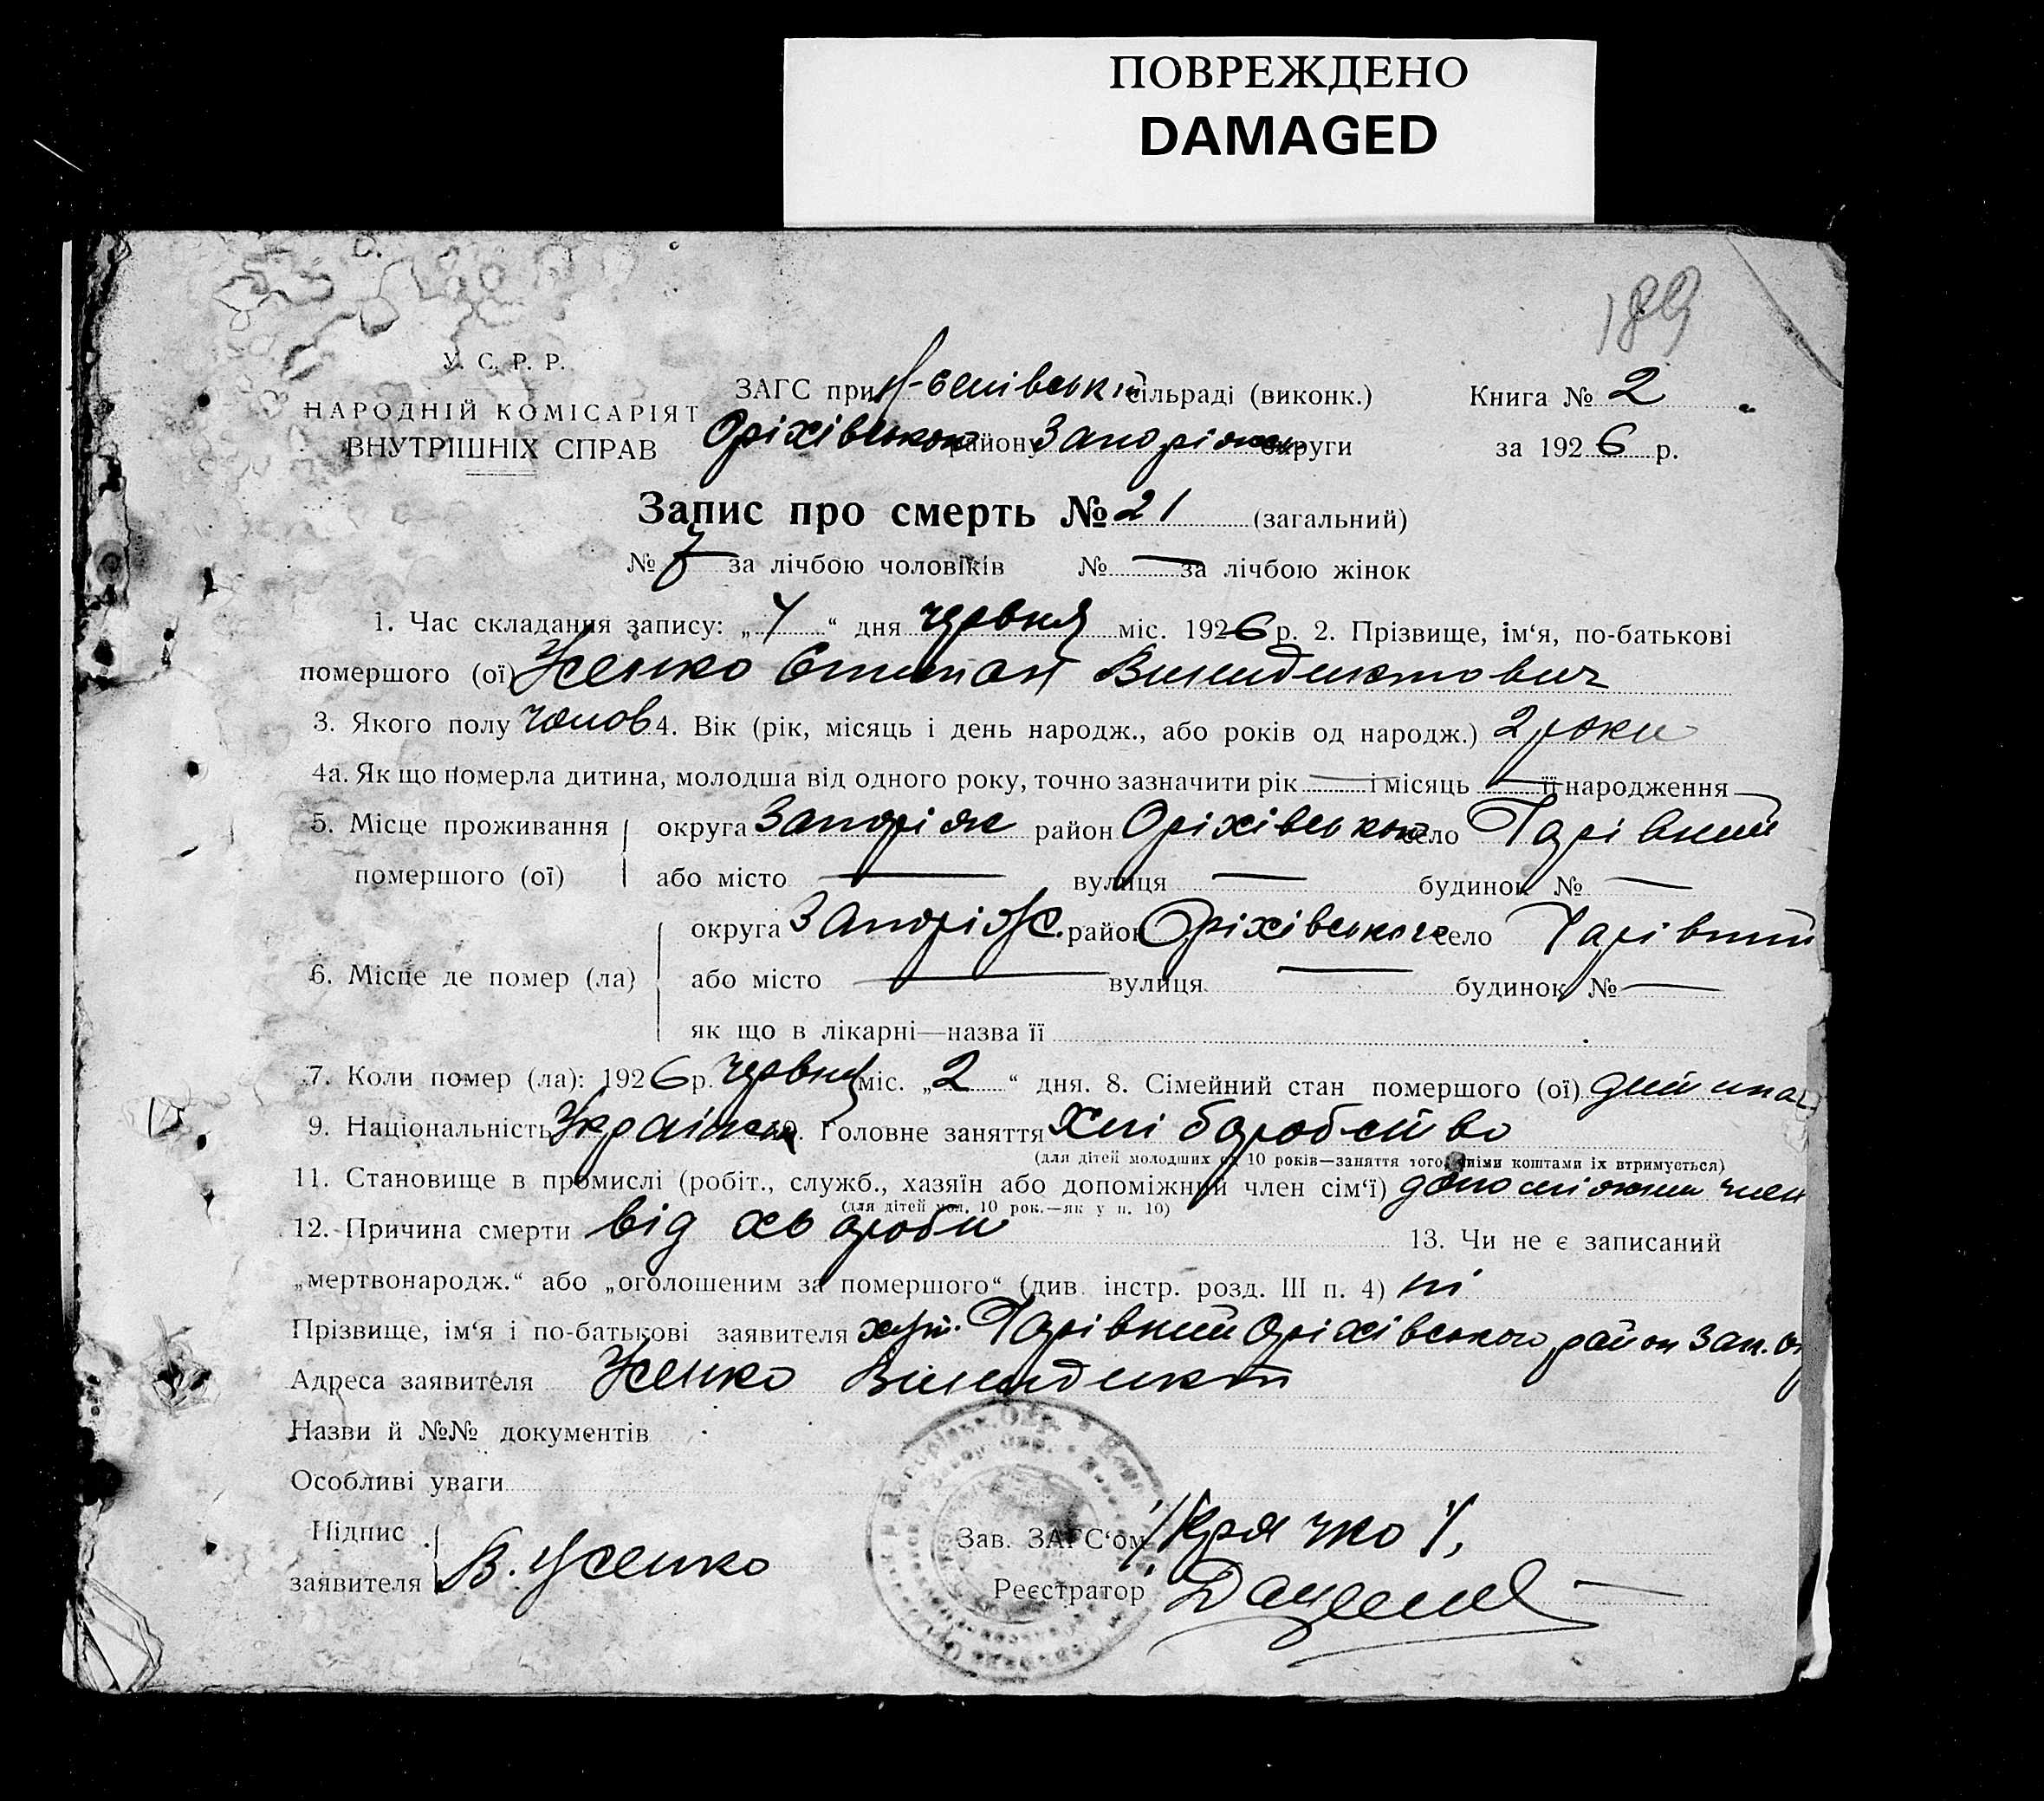 ПОВРЕЖДЕНО
DAMAGED
189
У. С. Р. Р.
НАРОДНІЙ КОМІСАРІЯТ
ВНУТРІШНІХ СПРАВ
ЗАГС при сільраді (виконк.)
Оріхівського району Запоріжськ округи
Книга № 2
за 1926 р.
Запис про смерть № 21 (загальний)
№ 7 за лічбою чоловіків № — за лічбою жінок
1. Час складання запису: „ 4 “ дня червня міс. 1926 р. 2. Прізвище, ім‘я, по-батькові
помершого (ої) Усенко Винидиктович
3. Якого полу чолов 4. Вік (рік, місяць і день народж., або років од народж.) 2 роки
4а. Як що померла дитина, молодша від одного року, точно зазначити рік — і місяць — її народження —
5. Місце проживання помершого (ої) округа Запоріж район Оріхівського село Гарівний
або місто — вулиця — будинок № —
6. Місце де помер (ла) округа Запоріж. район Оріхівського село Гарівний
або місто — вулиця — будинок № —
як що в лікарні—назва її
7. Коли помер (ла): 1926 р. червня міс. „ 2 “ дня. 8. Сімейний стан помершого (ої) дитина
9. Національність 10. Головне заняття Хліборобство
(для дітей молодших од 10 років—заняття того, чіїми коштами їх втримується)
11. Становище в промислі (робіт., служб., хазяїн або допоміжний член сім‘ї) допоміжний член
(для дітей мол. 10 рок.—як у п. 10)
12. Причина смерти від хвороби 13. Чи не є записаний
„мертвонародж.“ або „оголошеним за помершого“ (див. інстр. розд. III п. 4) ні
Прізвище, ім‘я і по-батькові заявителя хут. Гарівний Оріхівського район Зап. ок
Адреса заявителя Усенко Винидикт
Назви й №№ документів
Особливі уваги
Підпис заявителя В. Усенко
Зав. ЗАГС‘ом /Крячко/,
Реєстратор